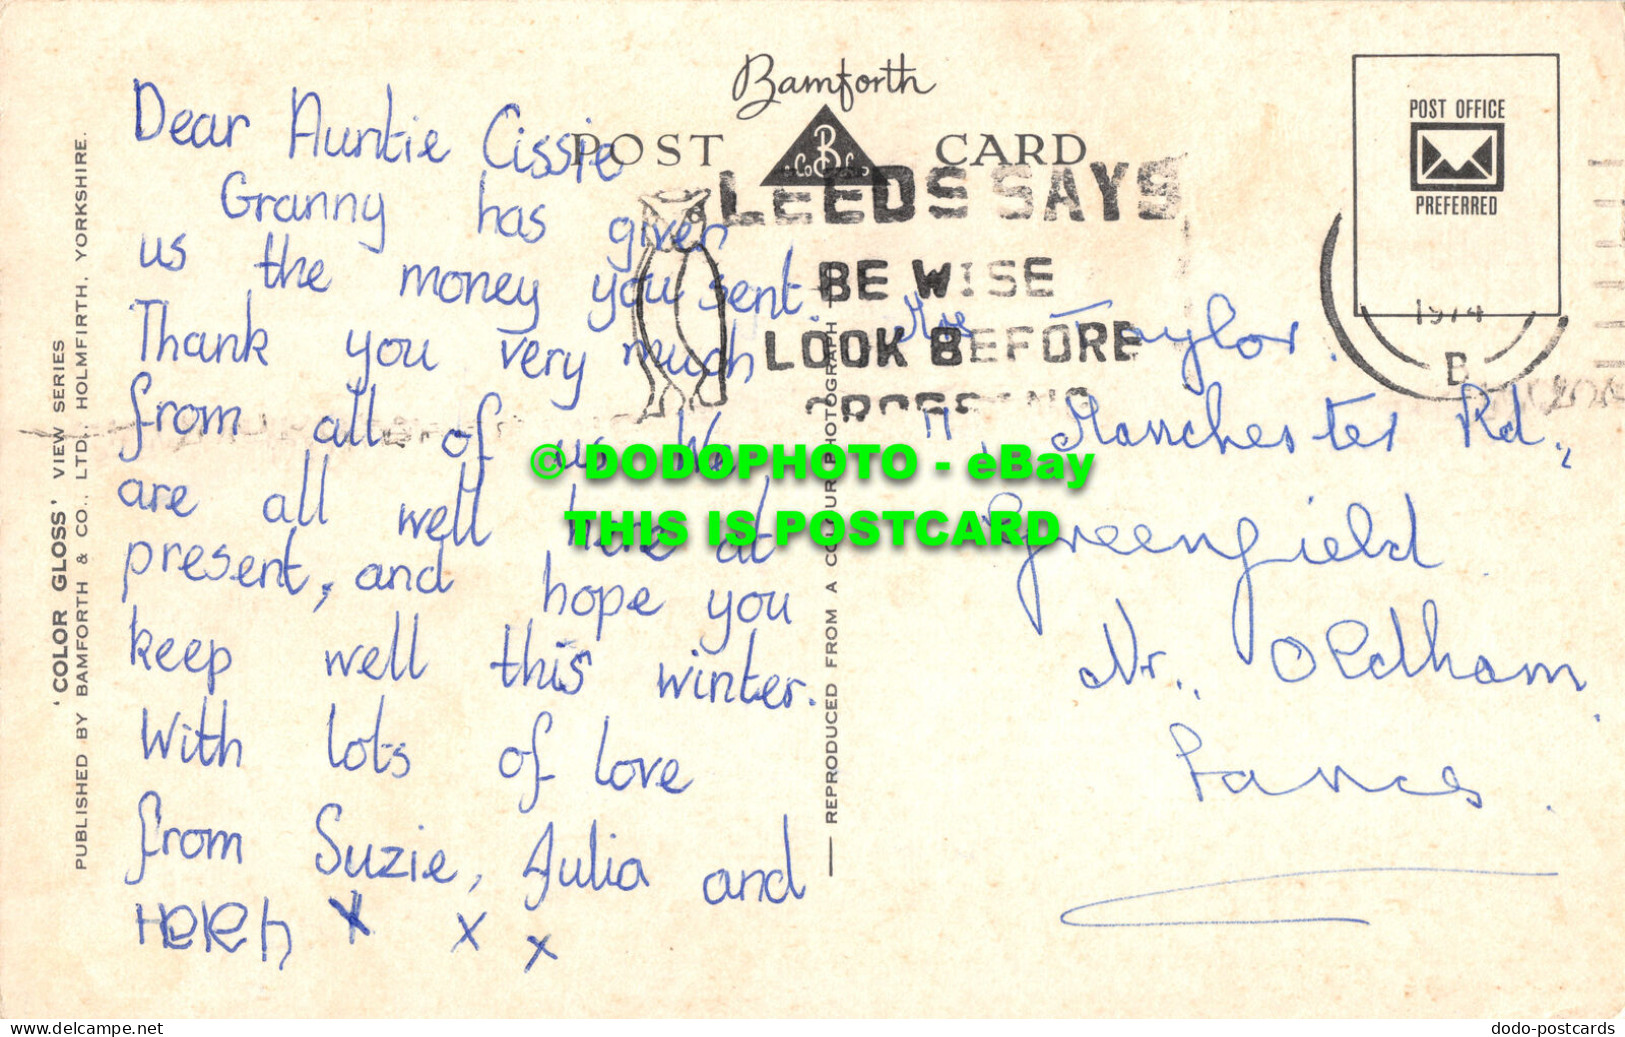 Bamforth
POST CARD
B
& Co Ld
POST OFFICE
PREFERRED
LEEDS SAYS
BE WISE
LOOK BEFORE
1974
B
Dear Auntie Cissie
Granny has given
us the money you sent.
Thank you very much
from all of us. We
are all well here at
present, and hope you
keep well this winter.
With lots of love
from Suzie, Julia and
Helen x x x
Mrs Taylor.
11, Manchester Rd.,
Greenfield
Nr. Oldham
Lancs.
'COLOR GLOSS' VIEW SERIES
PUBLISHED BY BAMFORTH & CO., LTD., HOLMFIRTH, YORKSHIRE.
— REPRODUCED FROM A COLOUR PHOTOGRAPH
© DODOPHOTO - eBay
THIS IS POSTCARD
www.delcampe.net
dodo-postcards